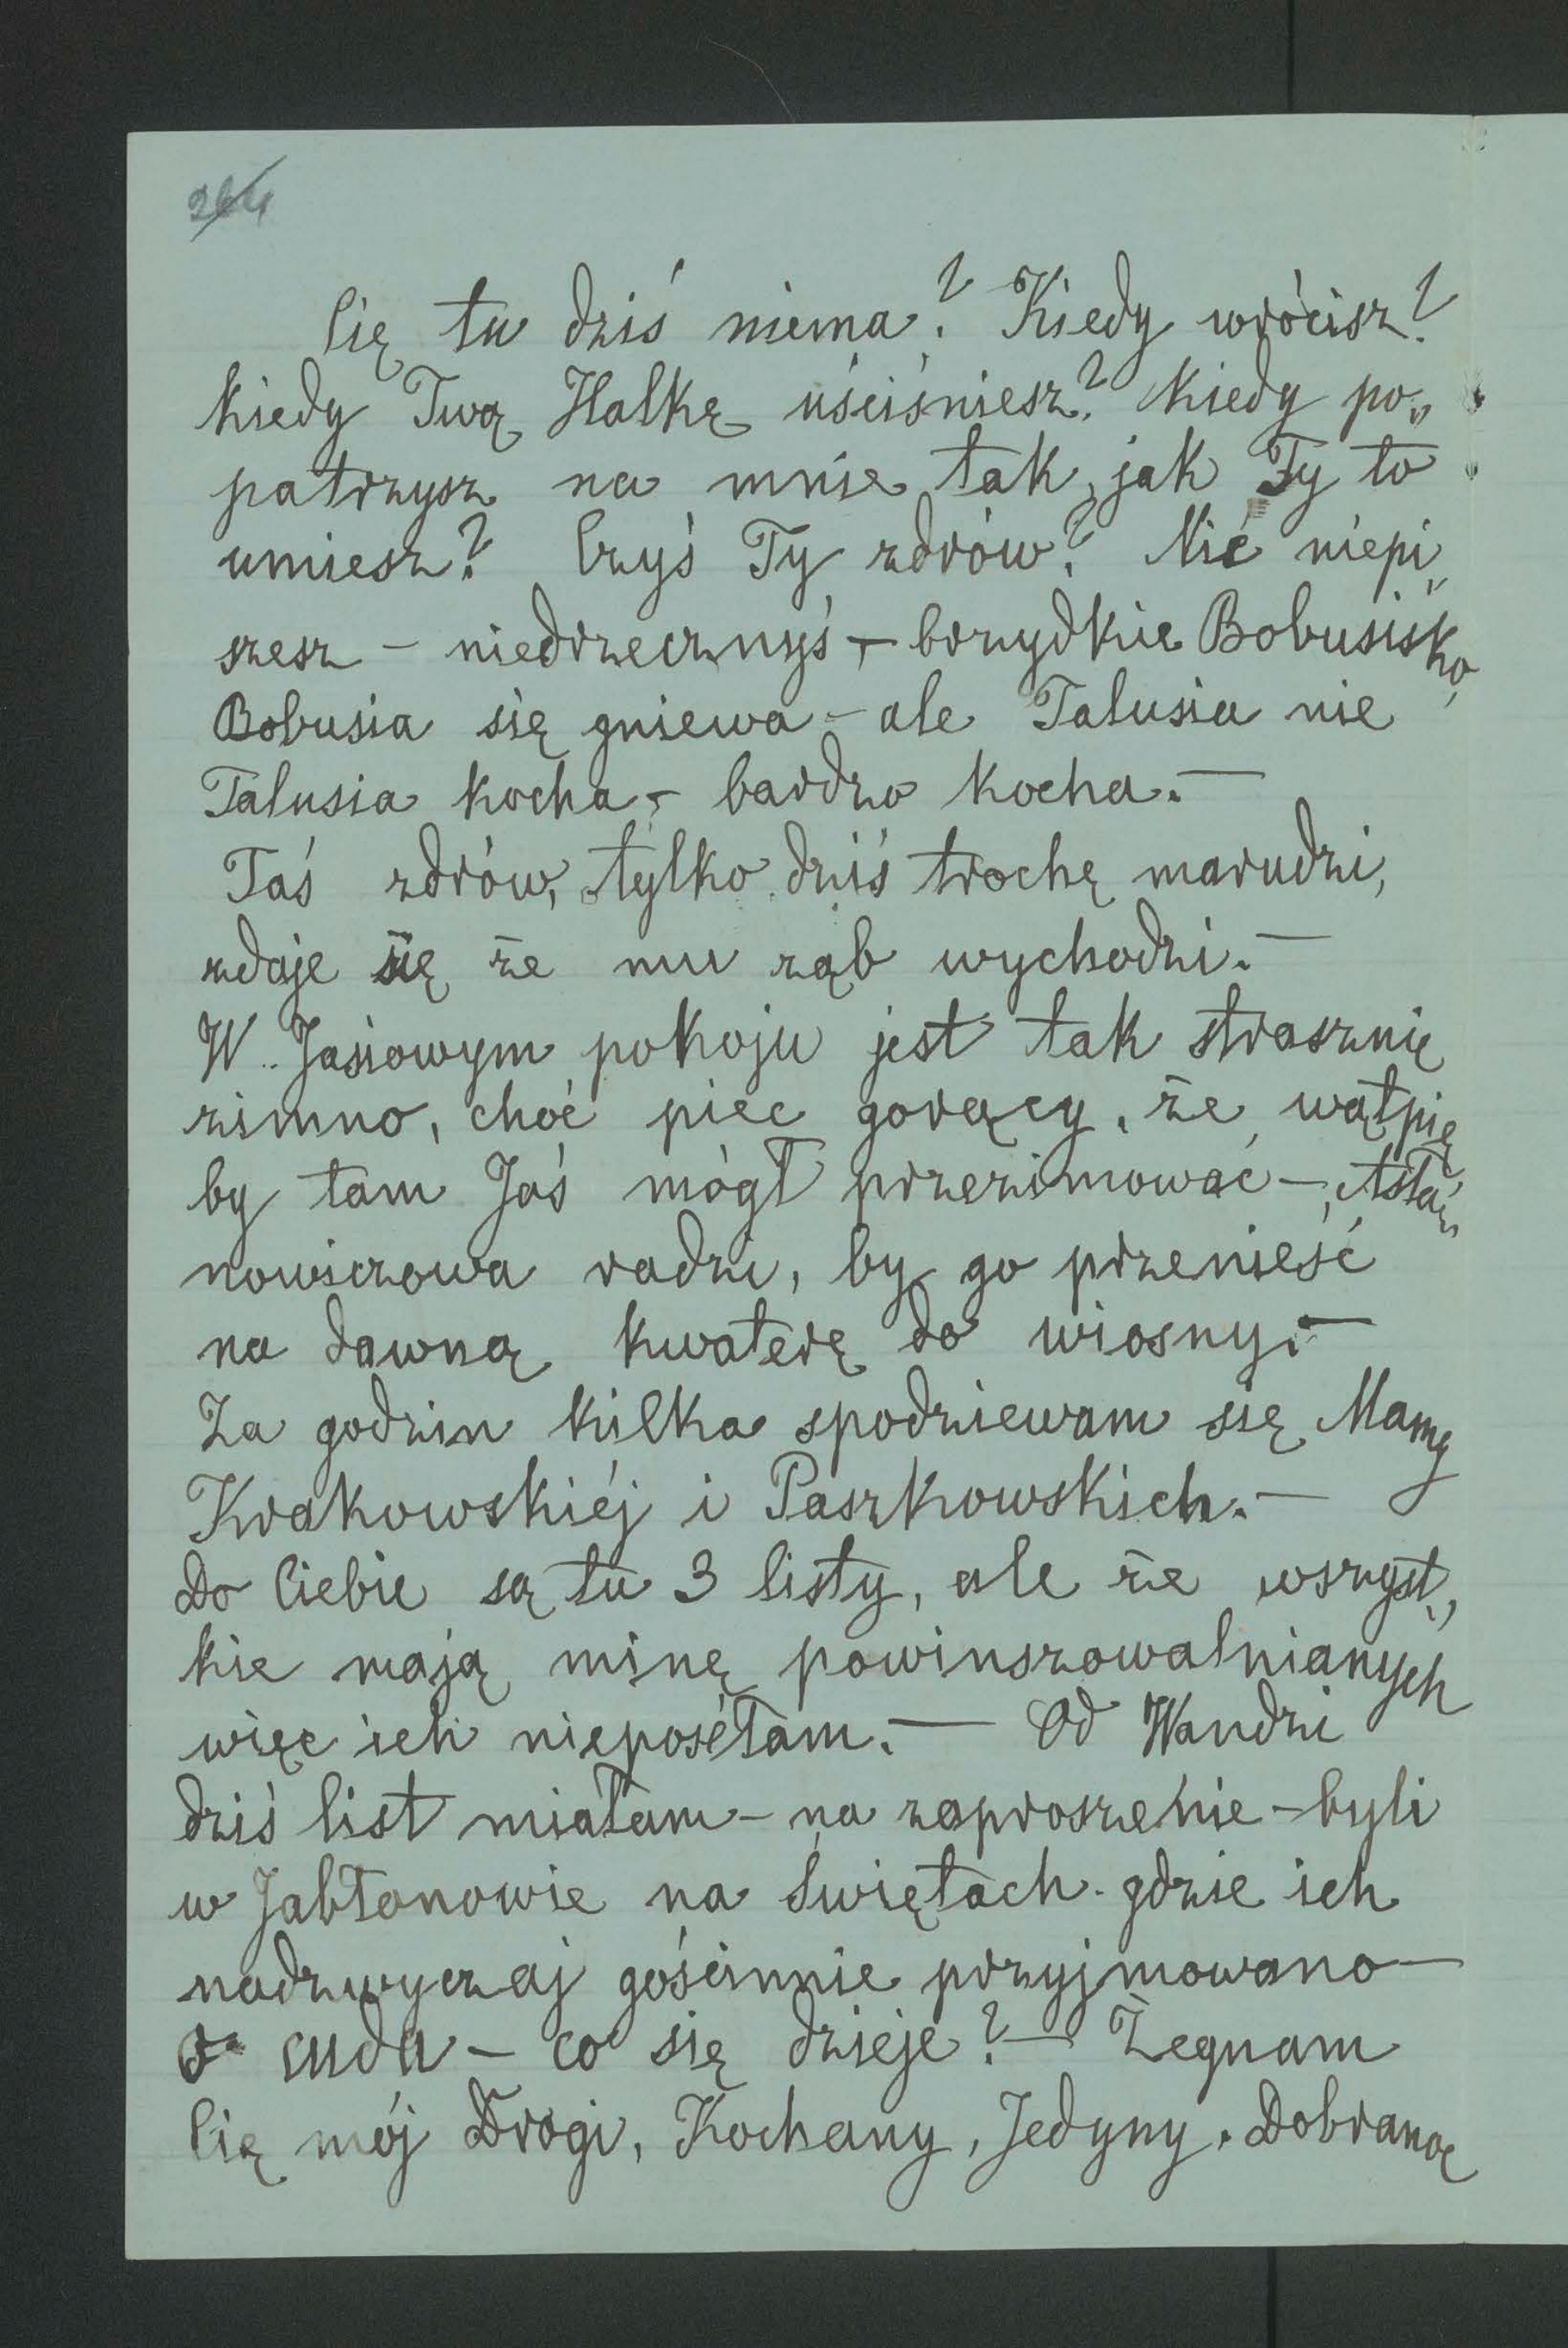 264
Cię tu dziś niema? Kiedy wrócisz?
kiedy Twą Halkę uściśniesz? kiedy po„
patrzysz na mnie tak, jak Ty to
umiesz? Czyś Ty zdrów? Nic niepi„
szesz – niedrzecznyś – brzydkie Bobusisko,
Bobusia się gniewa – ale Talusia nie
Talusia kocha – bardzo kocha. –
Taś zdrów, tylko dziś trochę marudzi,
zdaje się że mu ząb wychodzi. –
W Jasiowym pokoju jest tak strasznie
zimno, choć piec gorący, że wątpię
by tam Jaś mógł przezimować –, Asła„
nowiczowa radzi, by go przenieść
na dawną kwaterę do wiosny. –
Za godzin kilka spodziewam się Mamy
Krakowskiéj i Paszkowskich. –
Do Ciebie są tu 3 listy, ale że wszyst„
kie mają minę powinszowalnianych
więc ich nieposéłam. – Od Wandzi
dziś list miałam – na zaproszenie – byli
w Jabłonowie na Świętach gdzie ich
nadzwyczaj gościnnie przyjmowano –
o cuda – co się dzieje? – Żegnam
Cię mój Drogi, Kochany, Jedyny. Dobranoc